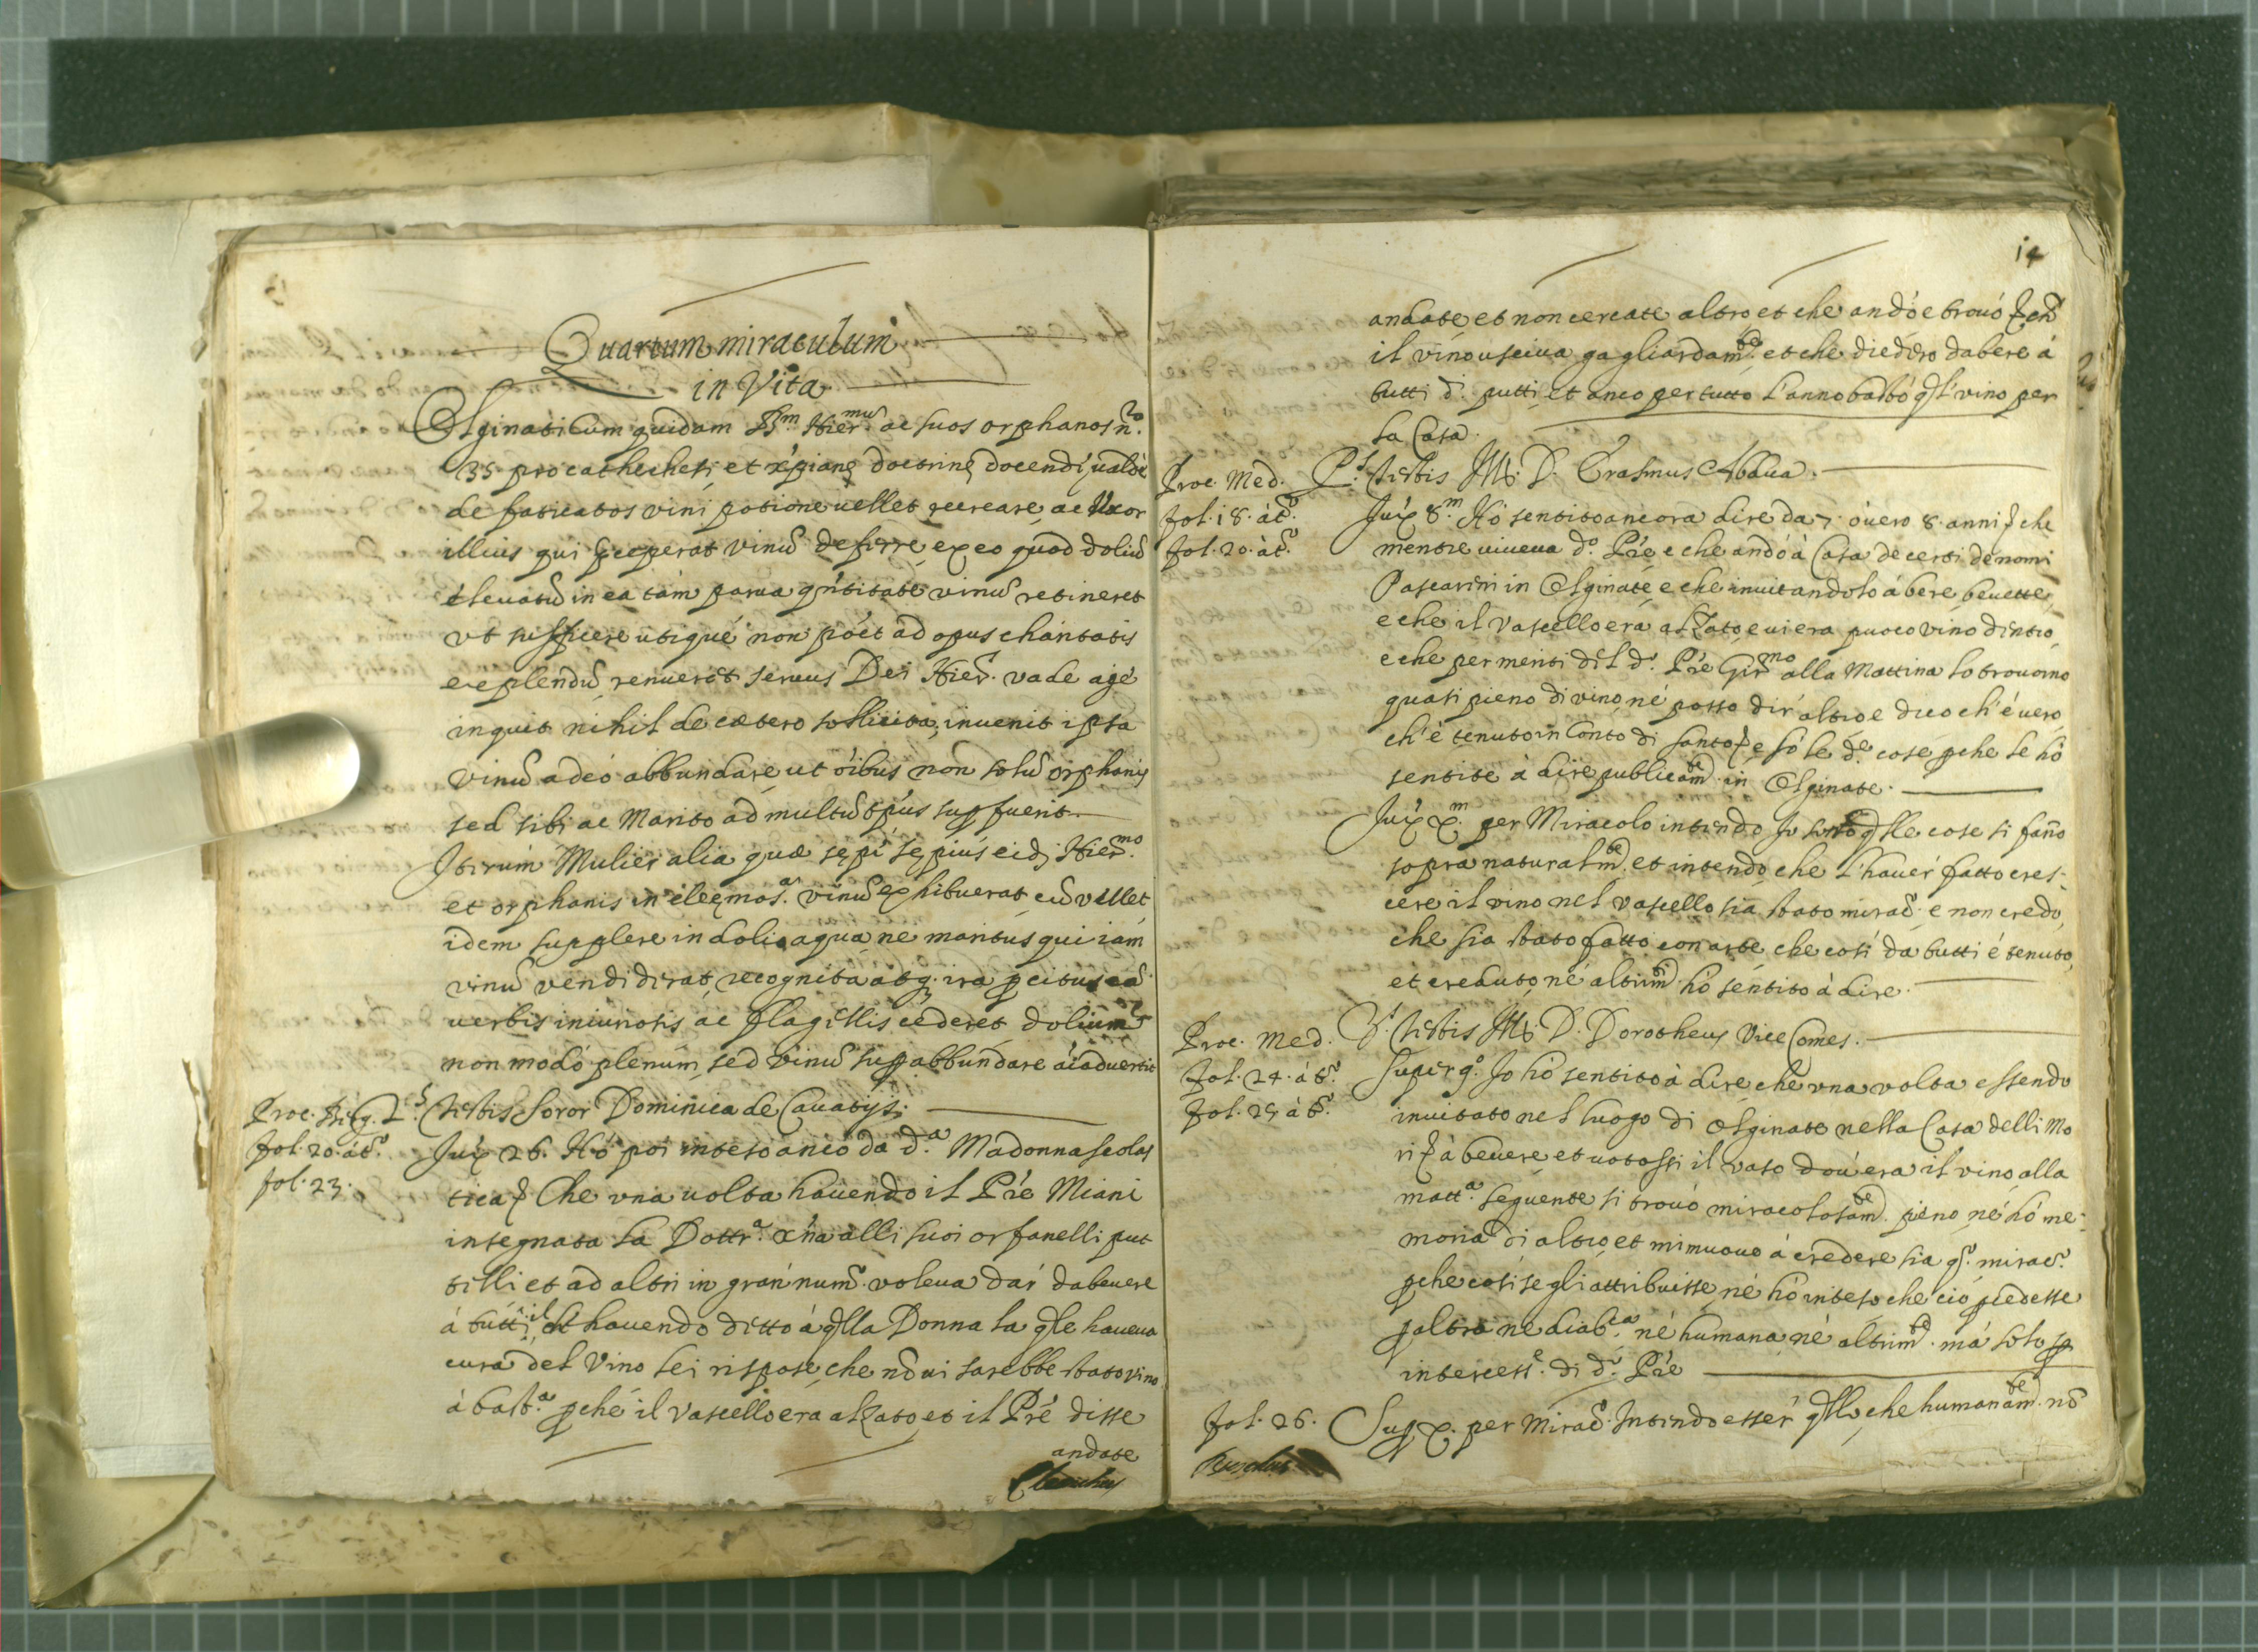 Quartum miraculum
in Vita
Olginati cum quidam Hier.mus ac suos orphanos n.ro
35 pro cathechesi, et xp̃ianę doctrinę docendi, ualde
de fatigatos vini potione uellet recreare, ac Uxor
illius qui p̃ceperat vinũ deferre, ex eo quod doliũ
eleuatũ in ea tàm parua qñtitate vinũ retineret
vt sufficere utiqué non pót ad opus charitatis
explendũ renueret seruus Dei Hier. vade agè
inquit nihil de cætero sollicita, inuenit ipsa
vinũ adeò abbundare, ut oĩbus non solũ orphanis
sed sibi ac Marito ad multũ tp̃us sup̃fuerit.
Iterùm Mulier alia quæ sępì sępiùs eidẽ Hier.mo
et orphanis in eleęmos.a vinũ exhibuerat, cũ vellet
idem supplere in dolio aqua, ne maritus qui iàm
vinũ vendiderat, recognita atq. ira p̃citus eã
uerbis iniuriosis ac flagellis cederet dolium
non modò plenum, sed vinũ sup̃abbundare aĩaduertit
Proc. Berg. 2.s Testis Soror Dominica de Cauatijs.
fol. 20. át.o Jux 26. Hò poi inteso anco da d.a Madonna scolas
fol. 23.
tica Che vna uolta hauendo il Prẽ Miani
insegnata la Dottr.a xñna alli suoi orfanelli put
tilli et ad altri in gran num.o voleua dar da beuere
à tutti, il che hauendo ditto à qlla Donna la qle haueua
cura del Vino lei rispose, che nõ ui sarebbe stato vino
à bast.a p̃ché il vascello era alzato, et il Prẽ disse
andate
14
andate, et non cercate altro et che andò e trouò
il vino usciua gagliardam.te et che diedero da bere à
tutti d.i putti, et anco per tutto l'anno bastò qsto vino per
la Casa.
Proc. Med. P.s testis D. Erasmus Abbua.
fol. 18. át.o Jux 8.m Hò sentito ancora dire da 7. óuero 8. anni che
fol. 20. át.o mentre uiueua d.o Prẽ, e che andò à Casa de certi de nomi
Pascarini in Olginate, e che inuitandolo à bere beuette,
e che il Vascello era alzato, e ui era puoco vino dentro,
e che per meriti del d.o Prẽ Gir.mo alla Mattina lo trouorno
quasi pieno di vino, né posso dir altro e dico ch'è uero,
ch'è tenuto in conto di santo, e sò le d.e cose p̃che le hò
sentite à dire publicam.te in Olginate.
Jux X.m per Miracolo intendo qlle cose si fañno
sopra naturalm.te et intendo, che l'hauer fatto cres-
cere il vino nel vascello sia stato mirac.o e non credo,
che sia stato fatto con arte, che così da tutti è tenuto,
et creduto, né altrim.ti hò sentito à dire.
Proc. Med. testis D. Dorotheus Vice Comes.
fol. 24. à t.o Super 9.o Io hò sentito à dire che vna volta essendo
fol. 25 à t.o inuitato nel luogo di Olginate nella Casa delli Mo
ri à beuere et uotossi il vaso dou'era il vino, alla
matt.a seguente si trouò miracolosam.te pieno, né hò me-
moria di altro, et mi muouo à credere sia qs.o mirac.o
p̃che così se gli attribuisse né hò inteso che ciò p̃cedesse
p̃ altra né diab.ca, né humana, né altrim.te, mà solo p̃
intercess.e di d.o Prẽ
fol. 26. Sup̃ X. per Mirac.o Intendo esser qllo, che humanam.te nõ